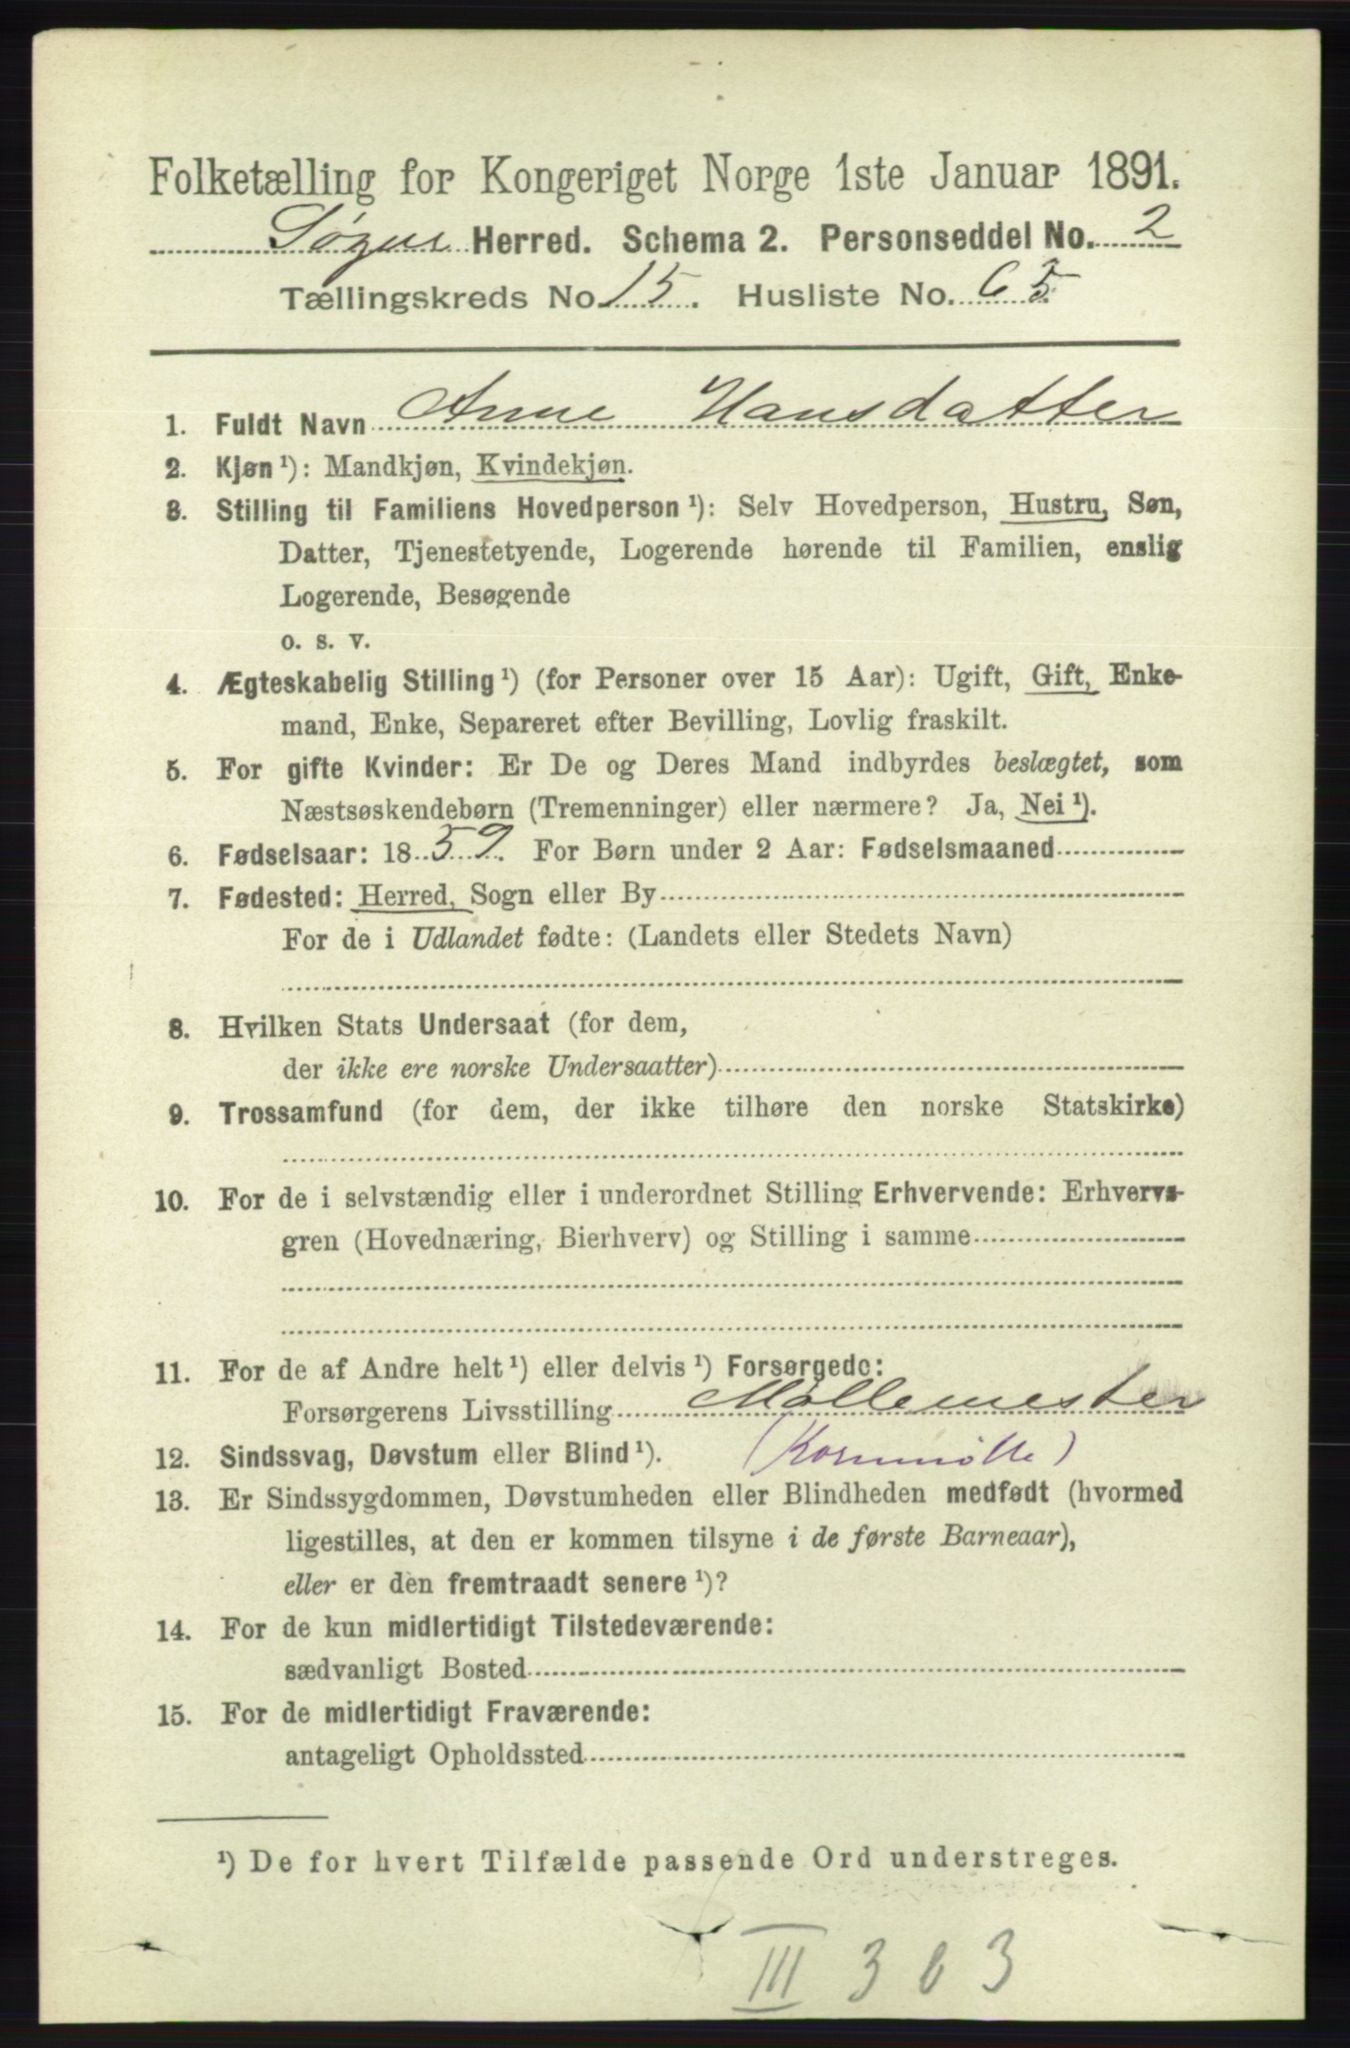 Folketælling for Kongeriget Norge 1ste Januar 1891.
Søgne Herred. Schema 2. Personseddel No. 2
Tællingskreds No. 15. Husliste No. 65
1. Fuldt Navn Anne Hansdatter
2. Kjøn ¹): Mandkjøn, Kvindekjøn.
3. Stilling til Familiens Hovedperson ¹): Selv Hovedperson, Hustru, Søn,
Datter, Tjenestetyende, Logerende hørende til Familien, enslig
Logerende, Besøgende
o. s. v.
4. Ægteskabelig Stilling ¹) (for Personer over 15 Aar): Ugift, Gift, Enke-
mand, Enke, Separeret efter Bevilling, Lovlig fraskilt.
5. For gifte Kvinder: Er De og Deres Mand indbyrdes beslægtet, som
Næstsøskendebørn (Tremenninger) eller nærmere? Ja, Nei ¹).
6. Fødselsaar: 1859. For Børn under 2 Aar: Fødselsmaaned
7. Fødested: Herred, Sogn eller By
For de i Udlandet fødte: (Landets eller Stedets Navn)
8. Hvilken Stats Undersaat (for dem,
der ikke ere norske Undersaatter)
9. Trossamfund (for dem, der ikke tilhøre den norske Statskirke)
10. For de i selvstændig eller i underordnet Stilling Erhvervende: Erhvervs-
gren (Hovednæring, Bierhverv) og Stilling i samme
11. For de af Andre helt ¹) eller delvis ¹) Forsørgede:
Forsørgerens Livsstilling Møllemester
12. Sindssvag, Døvstum eller Blind ¹). (Kornmølle)
13. Er Sindssygdommen, Døvstumheden eller Blindheden medfødt (hvormed
ligestilles, at den er kommen tilsyne i de første Barneaar),
eller er den fremtraadt senere ¹)?
14. For de kun midlertidigt Tilstedeværende:
sædvanligt Bosted
15. For de midlertidigt Fraværende:
antageligt Opholdssted
¹) De for hvert Tilfælde passende Ord understreges.
III 303